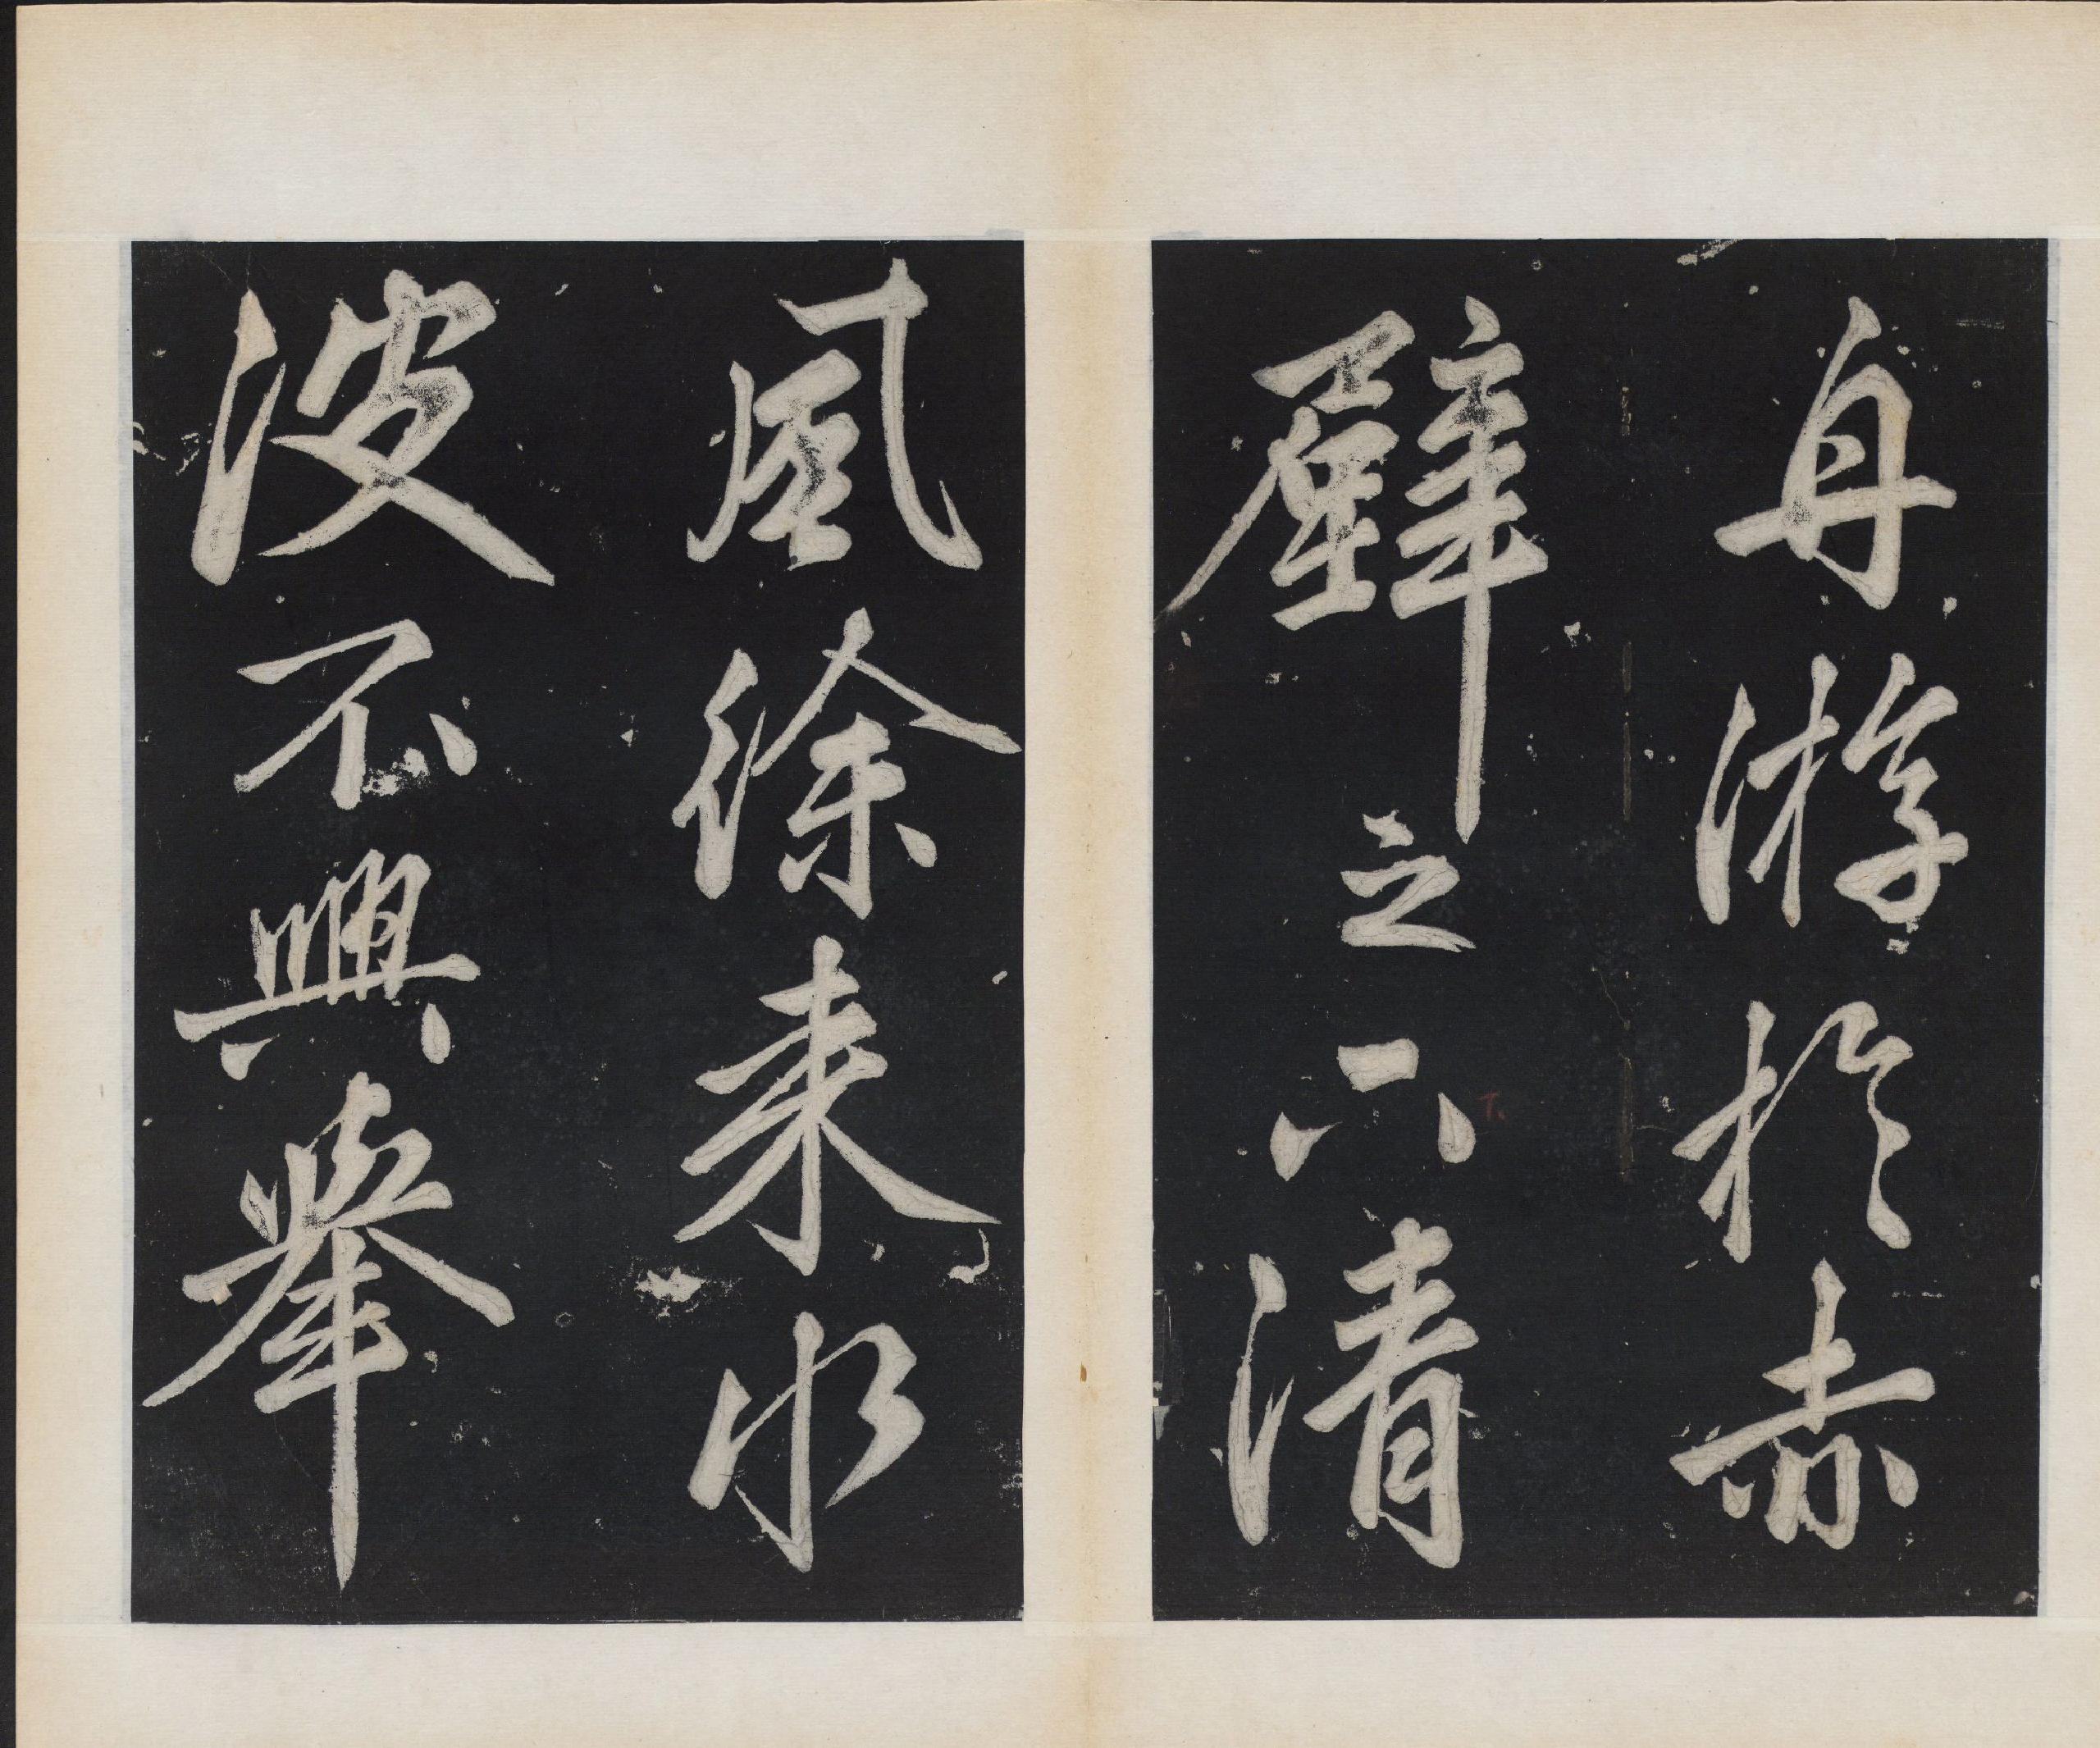 舟游於赤
壁之下清
風徐来水
波不興舉